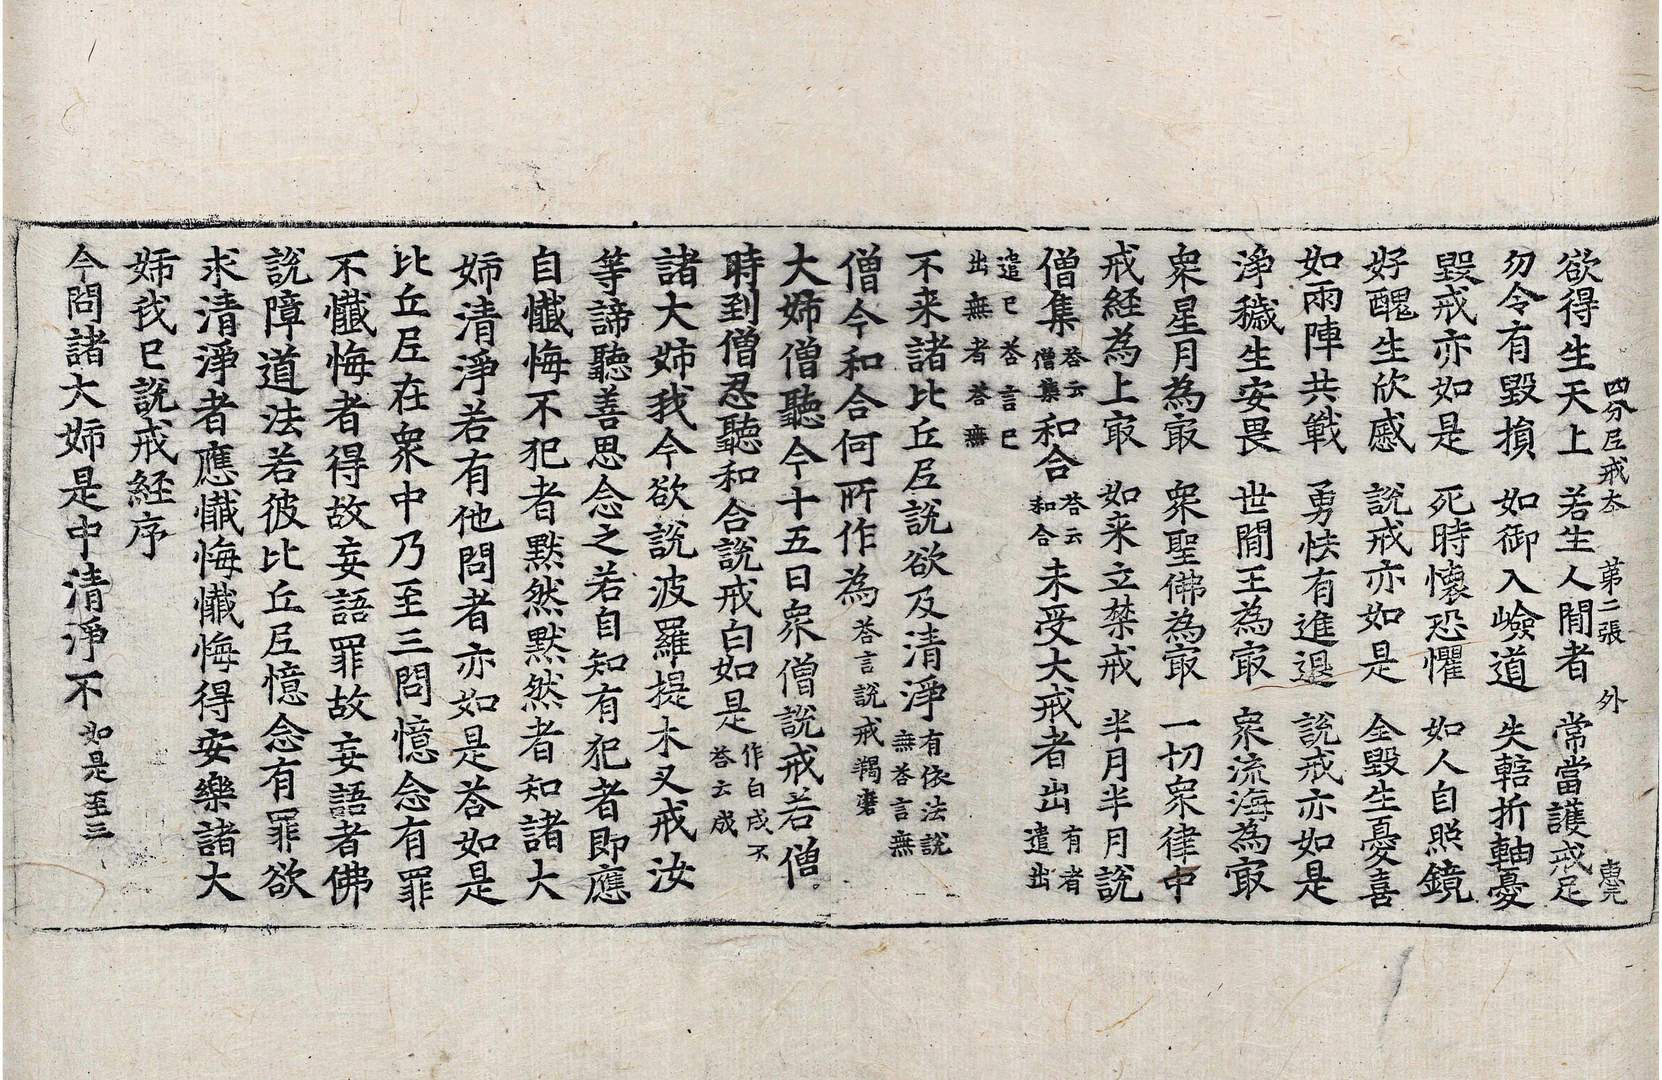 四分尼戒本 第二張 外 惠元
欲得生天上 若生人間者 常當護戒足
勿令有毀損 如御入嶮道 失轄折軸憂
毀戒亦如是 死時懷恐懼 如人自照鏡
好醜生欣慼 說戒亦如是 全毀生憂喜
如兩陣共戰 勇怯有進退 說戒亦如是
淨穢生安畏 世間王為㝡 衆流海為㝡
衆星月為㝡 衆聖佛為㝡 一切衆律中
戒経為上㝡 如来立禁戒 半月半月說
僧集 荅云僧集 和合 荅云和合 未受大戒者出 有者遣出
遣已荅言已出 無者荅無
不来諸比丘尼說欲及清淨 有依法說無荅言無
僧今和合何所作為 荅言說戒羯磨
大姉僧聽今十五日衆僧說戒若僧
時到僧忍聽和合說戒白如是 作白成不荅云成
諸大姉我今欲說波羅提木叉戒汝
等諦聽善思念之若自知有犯者即應
自懺悔不犯者默然默然者知諸大
姉清淨若有他問者亦如是荅如是
比丘尼在衆中乃至三問憶念有罪
不懺悔者得故妄語罪故妄語者佛
說障道法若彼比丘尼憶念有罪欲
求清淨者應懺悔懺悔得安樂諸大
姉我已說戒経序
今問諸大姉是中清淨不 如是至三